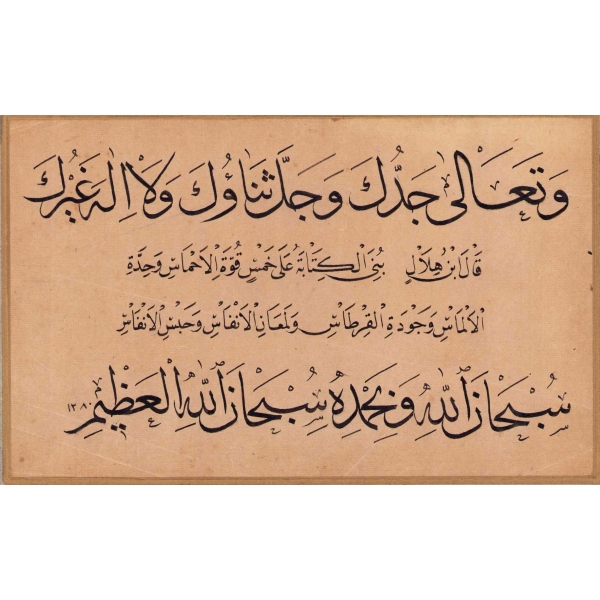 وَتَعَالَىٰ جَدُّكَ وَجَلَّ ثَنَاؤُكَ وَلَا اِلٰهَ غَيْرُكَ
قَالَ ابْنُ هِلَالٍ بُنِيَ الْكِتَابَةُ عَلَى خَمْسٍ قُوَّةِ الْاَخْمَاسِ وَحِدَّةِ
الْاَلْمَاسِ وَجَوْدَةِ الْقِرْطَاسِ وَلَمَعَانِ الْاَنْفَاسِ وَحَبْسِ الْاَنْفَاسِ
سُبْحَانَ اللّٰهِ وَبِحَمْدِهِ سُبْحَانَ اللّٰهِ الْعَظِيْمِ ١٣٨٠